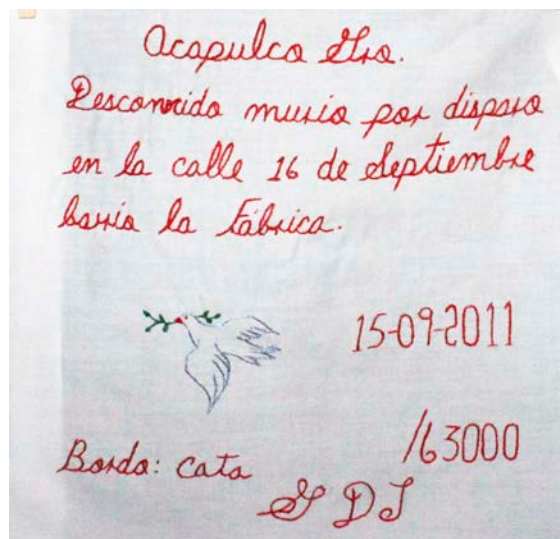 Acapulco Gro.
Desconocido murio por disparo
en la calle 16 de Septiembre
barrio la Fábrica.
15-09-2011
/63000
Bordo: Cata
G D J